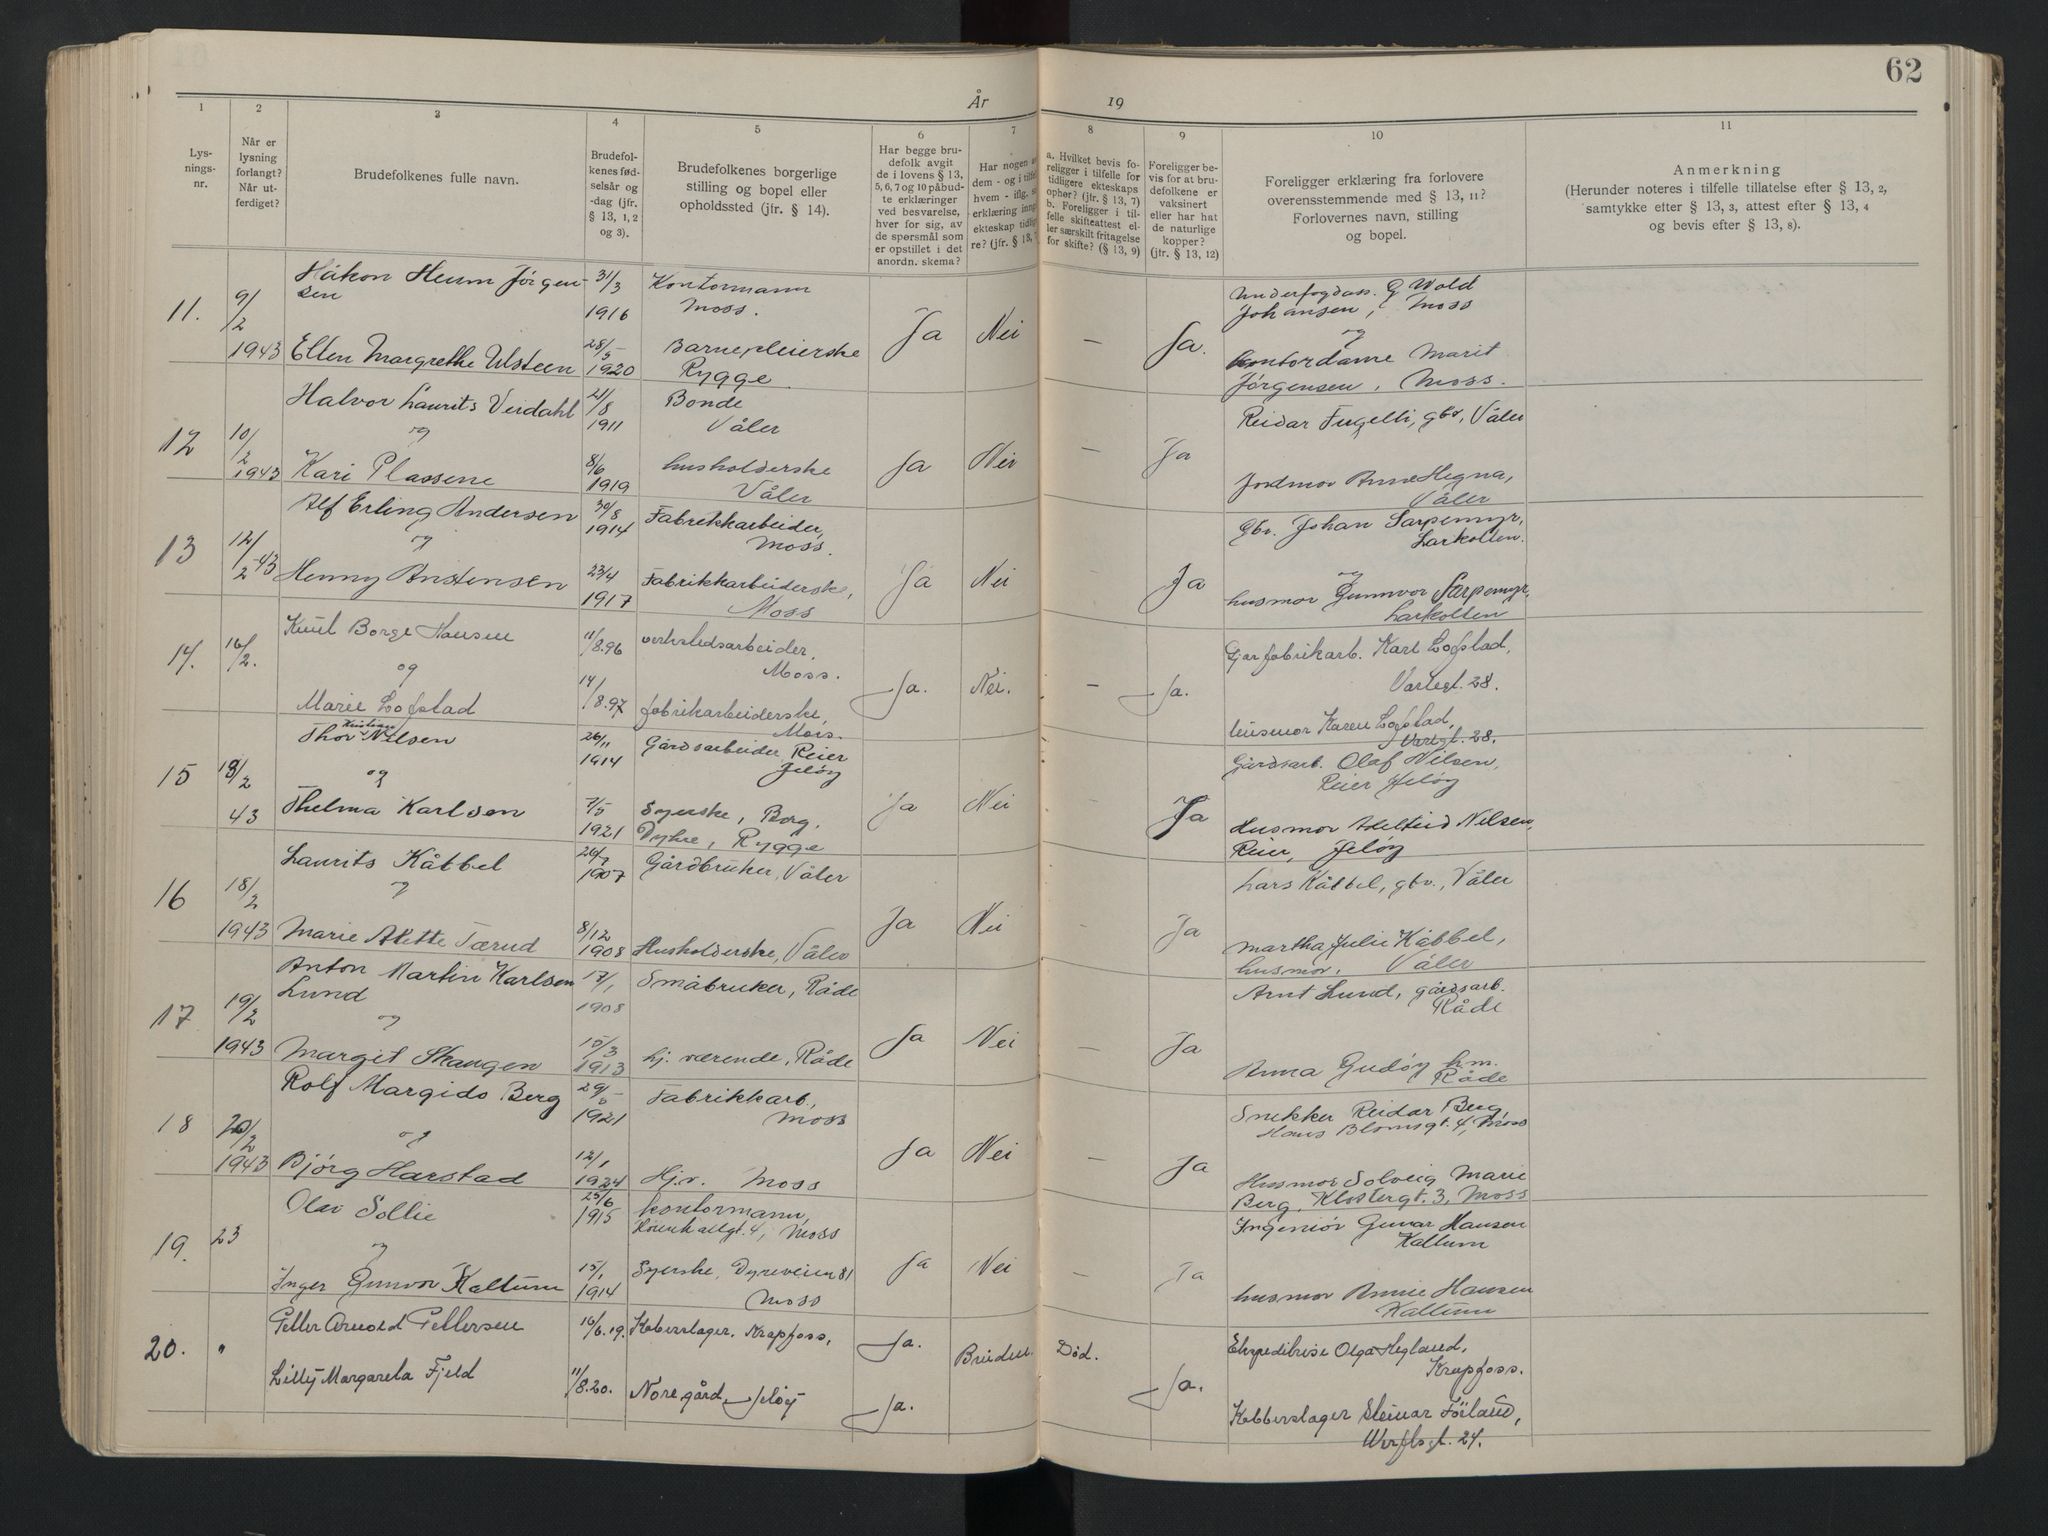 62
År 19
1 2 3 4 5 6 7 8 9 10 11
Lys-
nings-
nr.
Når er
lysning
forlangt?
Når ut-
ferdiget?
Brudefolkenes fulle navn.
Brudefol-
kenes fød-
selsår og
-dag (jfr.
§ 13, 1, 2
og 3).
Brudefolkenes borgerlige
stilling og bopel eller
opholdssted (jfr. § 14).
Har begge bru-
defolk avgit
de i lovens § 13,
5, 6, 7 og 10 påbud-
te erklæringer
ved besvarelse,
hver for sig, av
de spørsmål som
er opstillet i det
anordn. skema?
Har nogen a
dem - og i tilfel
hvem - iflg. s
erklæring inng
ekteskap tidlig
re? (jfr. § 13, 7
a. Hvilket bevis fo-
religger i tilfelle for
tidligere ekteskaps
ophør? (jfr. § 13, 7)
b. Foreligger i til-
felle skifteattest el-
ler særskilt fritagelse
for skifte? (§ 13, 9)
Foreligger be-
vis for at bru-
defolkene er
vaksinert
eller har hat
de naturlige
kopper?
(jfr. § 13, 12)
Foreligger erklæring fra forlovere
overensstemmende med § 13, 11?
Forlovernes navn, stilling
og bopel.
Anmerkning
(Herunder noteres i tilfelle tillatelse efter § 13, 2,
samtykke efter § 13, 3, attest efter § 13, 4
og bevis efter § 13, 8).
11. 9/2 1943
Håkon Heum Jørgen-
sen
31/3 1916
Kontormann
Moss.
Ellen Margrethe Ulsteen
28/5 1920
Barnepleierske
Rygge
Ja Nei — Ja.
Underfogdass. G Wold
Johansen, Moss
og
Kontordame Marit
Jørgensen, Moss.
12 10/2 1943
Halvor Laurits Veidahl
og
21/8 1911
Bonde
Våler
Kari Plassene
8/6 1919
husholderske
Våler
Ja Nei — Ja
Reidar Fugelli, gbr, Våler
Jordmor Anne Hegna,
Våler
13 12/2-43
Alf Erling Andersen
og
30/8 1914
Fabrikkarbeider,
Moss.
Henny Anstensen
23/4 1917
Fabrikkarbeiderske,
Moss
Ja Nei — Ja
Gbr. Johan Sarpemyr,
Larkollen.
og
husmor Gunnvor Sarpemyr,
Larkollen
14. 16/2.
Knut Borge Hansen
og
11/8.96
verkstedsarbeider,
Moss.
Marie Lofstad
14/8.97
fabrikarbeiderske,
Moss.
Ja. Nei. — Ja.
fabrikarb. Karl Lofstad,
Vartegt. 28.
husmor Karen Lofstad,
Vartgt. 28.
15 18/2 43
Thor Kristian Nilsen
og
26/11 1914
Gårdsarbeider Reier
Jeløy
Thelma Karlsen
7/5 1921
Syerske, Borg,
Dykre, Rygge
Ja Nei Ja
Gårdsarb. Olaf Nilsen,
Reier Jeløy
Husmor Adelheid Nilsen,
Reier, Jeløy
16 18/2 1943
Laurits Kåbbel
og
1907
Gårdbruker, Våler
Marie Alette Tærud
8/12 1908
Husholderske, Våler
Ja Nei Ja
Lars Kåbbel, gbr., Våler
Martha Julie Kåbbel,
husmor, Våler
17 19/2 1943
Anton Martin Karlsen
Lund
og
17/1 1908
Småbruker, Råde
Margit Skaugen
15/3 1913
hj. værende, Råde
Ja Nei — Ja
Arnt Lund, gårdsarb.
Råde
Anna Gudøy h.m.
Råde
18 20/2 1943
Rolf Margido Berg
og
29/5 1921
Fabrikkarb.,
Moss
Bjørg Harstad
12/1 1924
Hj.v. Moss
Ja Nei Ja
Snekker Reidar Berg
Hans Blomsgt. 4, Moss
Husmor Solveig Marie
Berg, Klostergt. 3, Moss
19. 23
Olav Sollie
og
25/6 1915
kontormann,
4, Moss
Inger Gunvor Kallum
15/1 1914
Syerske, Dyreveien 81
Moss
Ja Nei — Ja
Ingeniør Gunnar Hansen
Kallum
husmor Annie Hansen
Kallum
20. "
Petter Arnold Pettersen
16/6.19.
Kobberslager, Krapfoss,
Lilly Margareta Fjeld
11/8.20.
Nore gård, Jeløy
Ja. Bruden. Død.
Ja. Ja.
Ekspeditrise Olga Hegland,
Krapfoss.
Kobberslager Steinar Førland,
Værftsgt. 24.